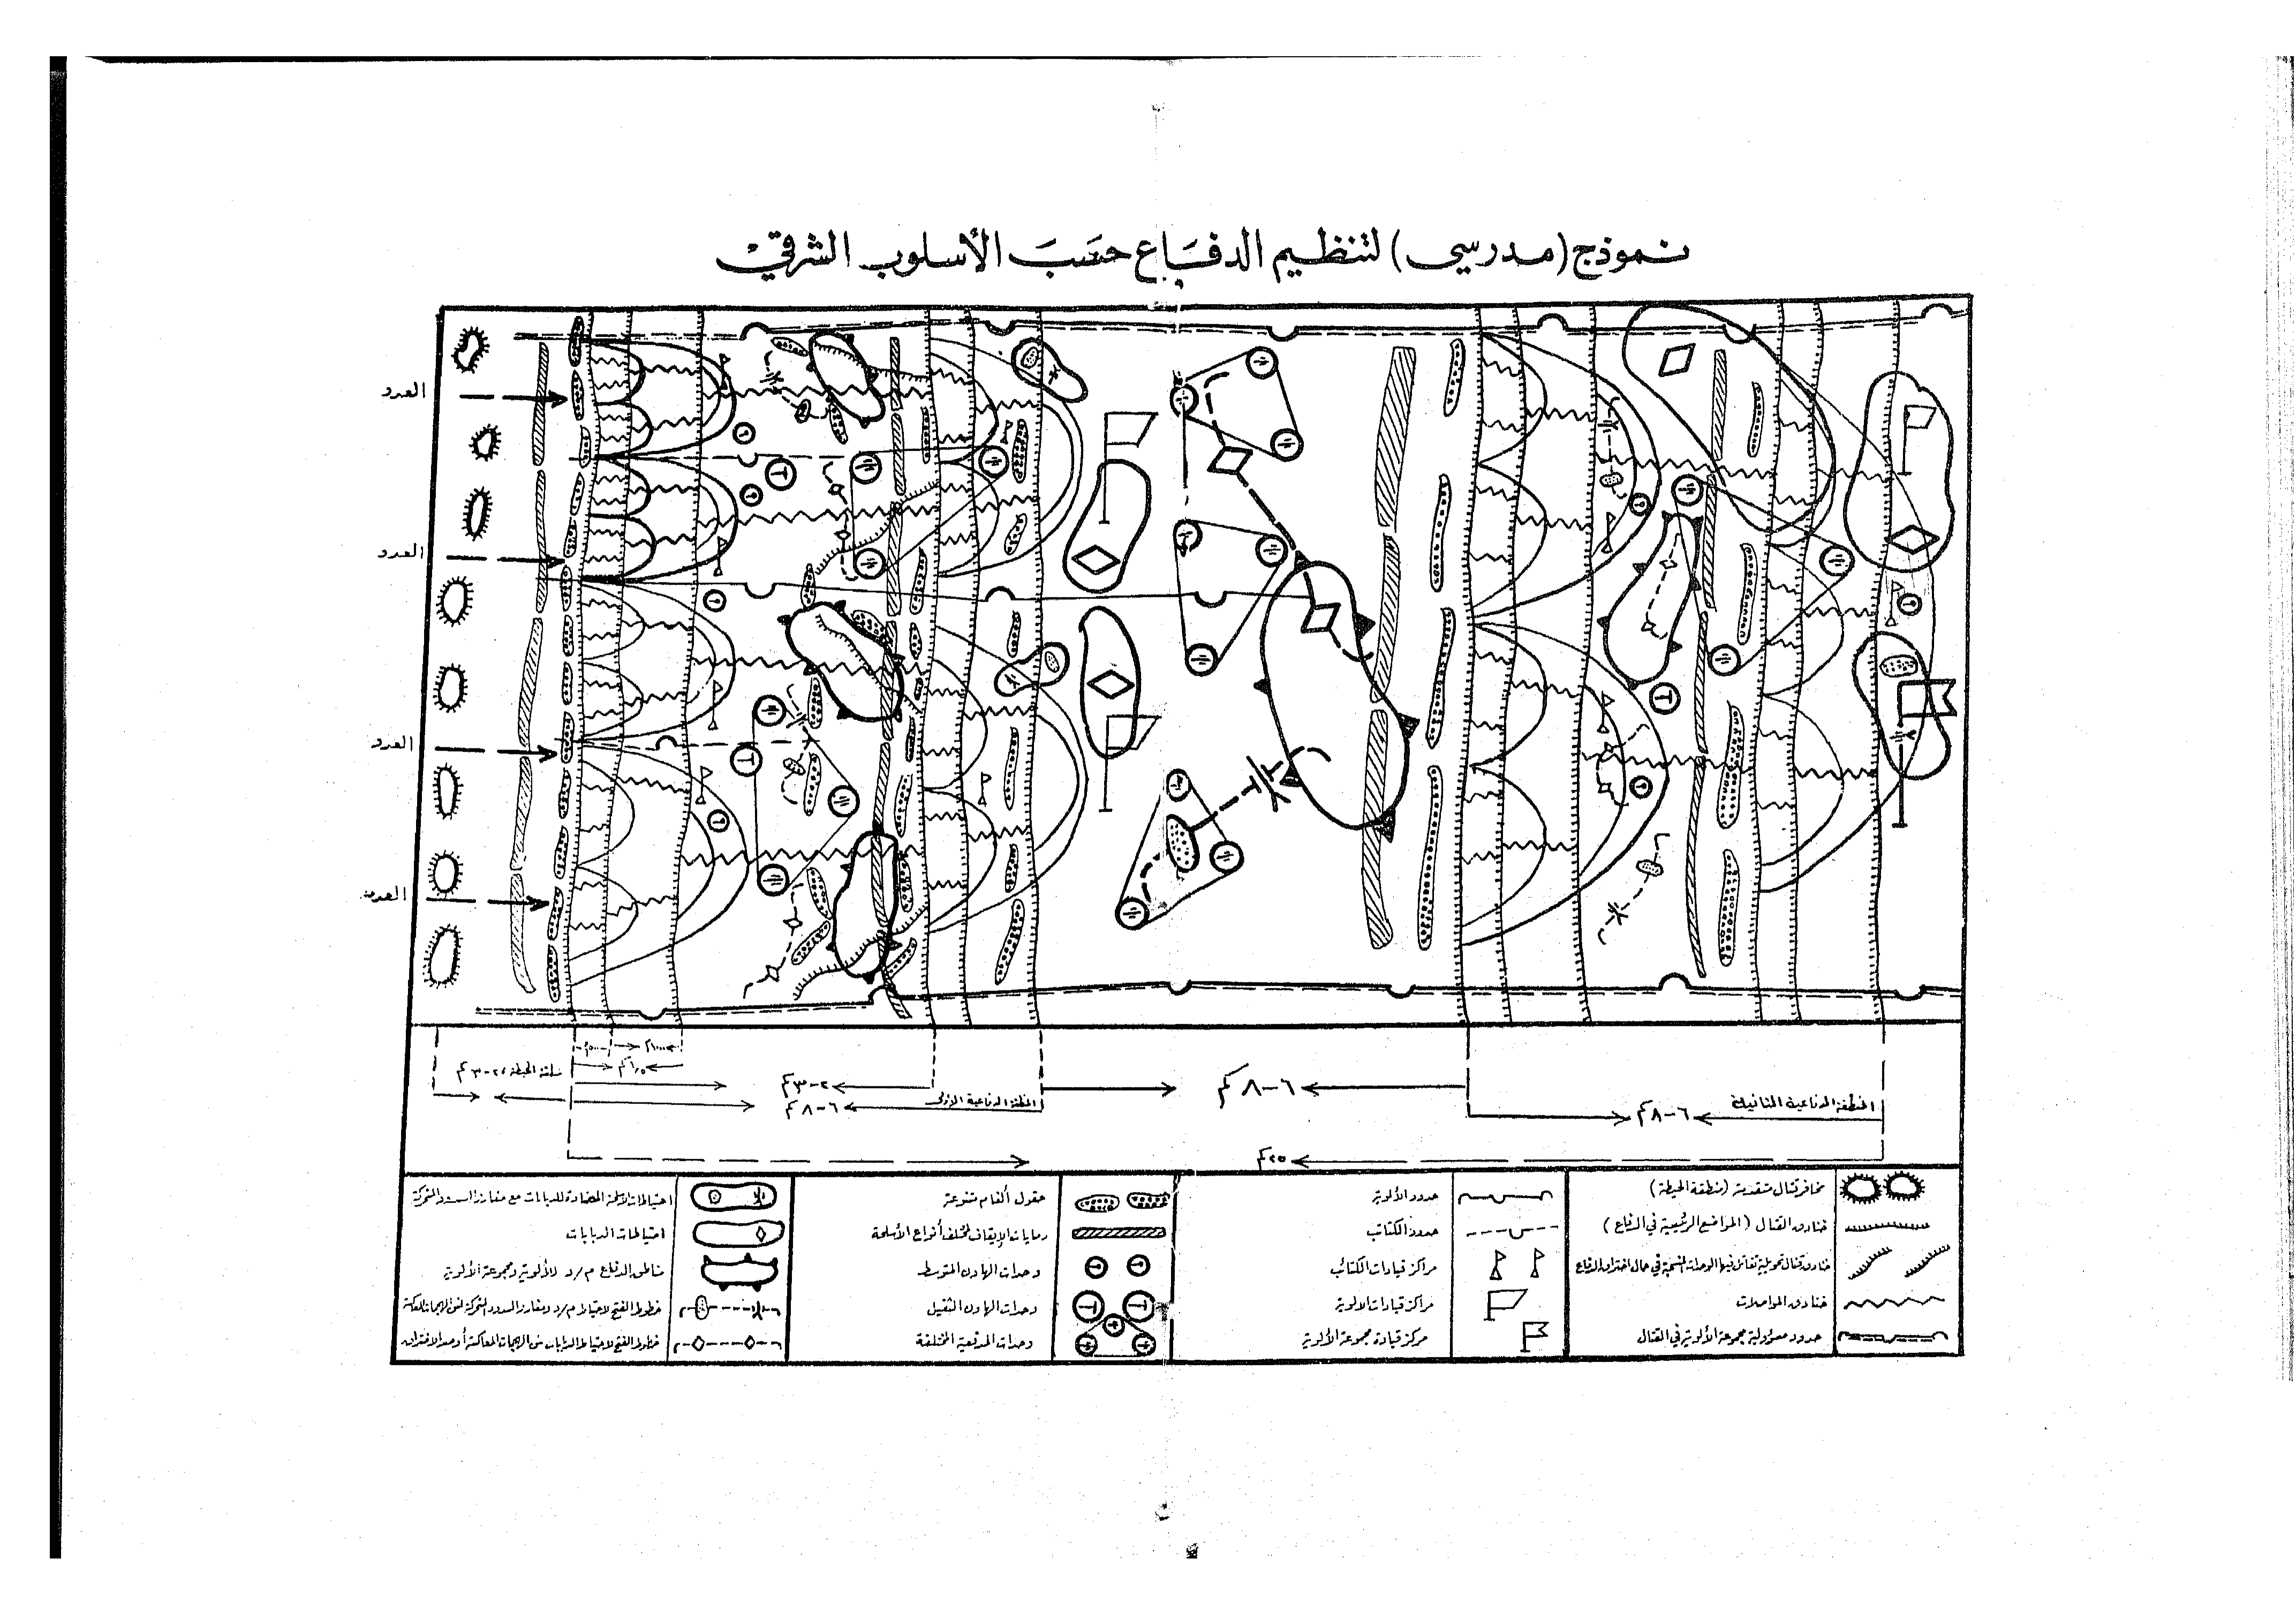 نموذج (مدرسي) لتنظيم الدفاع حسب الأسلوب الشرقي
العدو
العدو
العدو
العدو
٢-٣ كم
٦-٨ كم
المنطقة الدفاعية الأولى
٦-٨ كم
المنطقة الدفاعية الثانية
٦-٨ كم
٢٥ كم
مخافر قتال متقدمة (منطقة الحيطة)
خنادق القتال (المواضع الرئيسية في الدفاع)
خنادق المواصلات
حدود مسؤولية مجموعة الألوية في القتال
حدود الألوية
حدود الكتائب
مراكز قيادات الكتائب
مراكز قيادات الالوية
مركز قيادة مجموعة الألوية
حقول ألغام متنوعة
رمايات الإيقاف لمختلف أنواع الأسلحة
وحدات الهاون المتوسط
وحدات الهاون الثقيل
وحدات المدفعية المختلفة
احتياطات الدبابات
مناطق الدفاع م/د للألوية ومجموعة الألوية